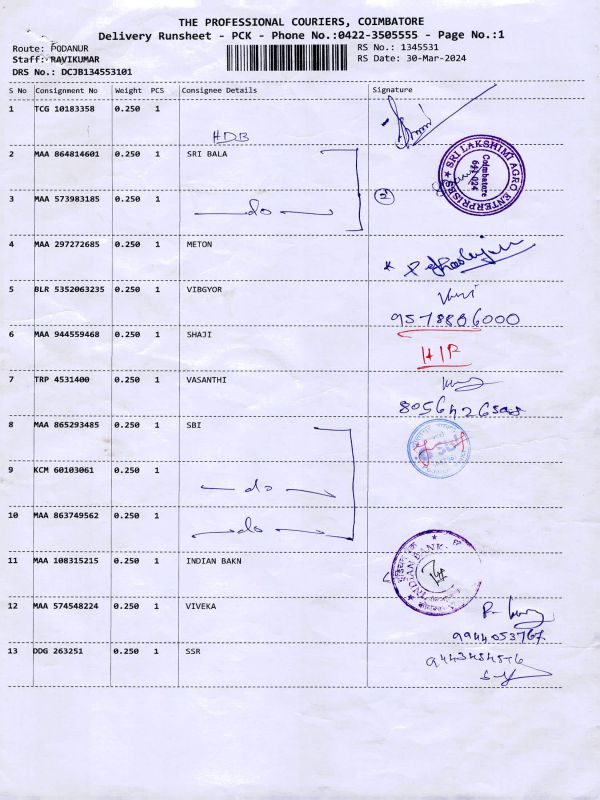 THE PROFESSIONAL COURIERS, COIMBATORE
Delivery Runsheet - PCK - Phone No.:0422-3505555 - Page No.:1
Route: PODANUR
Staff: RAVIKUMAR
DRS No.: DCJB134553101
RS No.: 1345531
RS Date: 30-Mar-2024
S No Consignment No Weight PCS Consignee Details Signature
1 TCG 10183358 0.250 1
HDB
2 MAA 864814601 0.250 1 SRI BALA
SRI LAKSHMI AGRO ENTERPRISES
Coimbatore
641 024
3 MAA 573983185 0.250 1
do
2
4 MAA 297272685 0.250 1 METON
5 BLR 5352063235 0.250 1 VIBGYOR
9578886000
6 MAA 944559468 0.250 1 SHAJI
H/P
7 TRP 4531400 0.250 1 VASANTHI
8 MAA 865293485 0.250 1 SBI
9 KCM 60103061 0.250 1
do
10 MAA 863749562 0.250 1
do
11 MAA 108315215 0.250 1 INDIAN BAKN
INDIAN BANK
12 MAA 574548224 0.250 1 VIVEKA
9944053767
13 DDG 263251 0.250 1 SSR